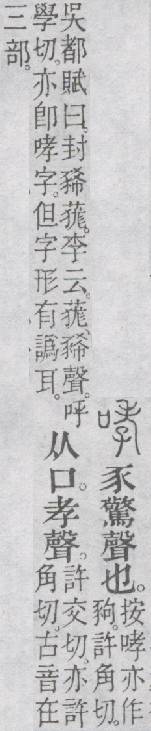 哮
豕驚聲也。
按哮亦作
狗。許角切。
吳都賦曰。封豨。李云。豨聲。呼
學切。亦卽哮字。但字形有譌耳。
从口。孝聲。
許交切。亦許
角切。古音在
三部。